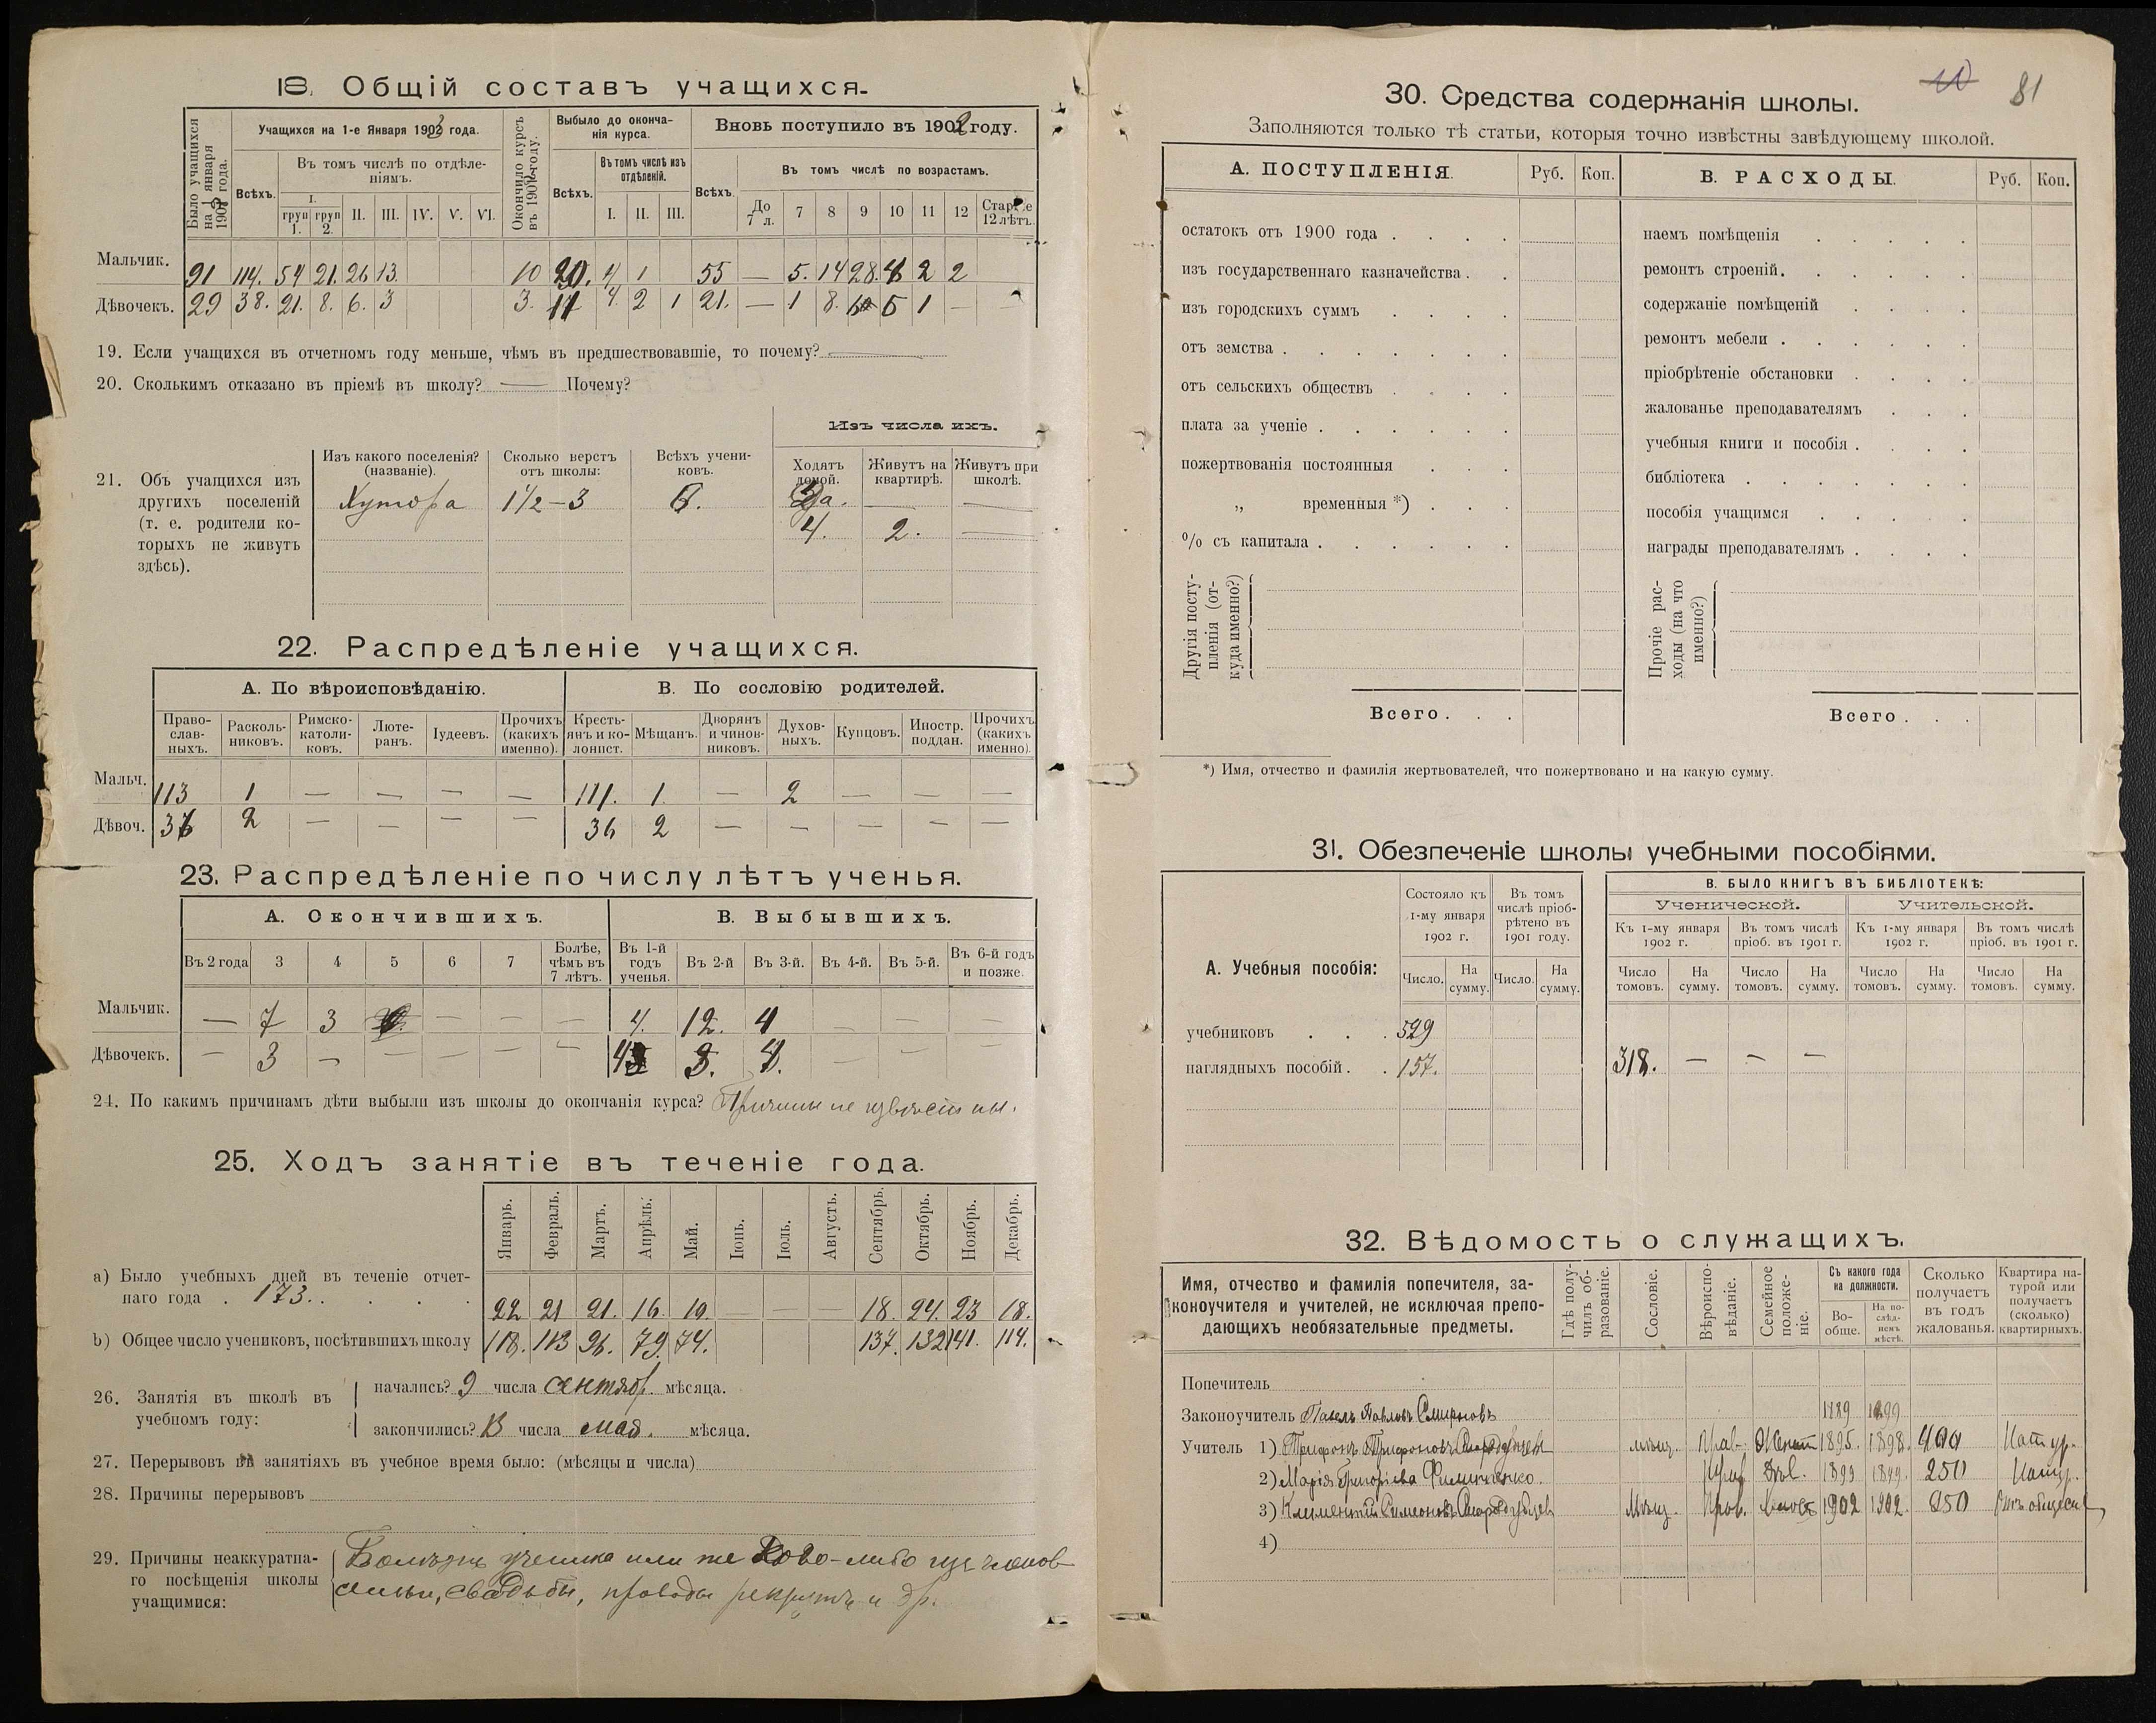 18. Общій составъ учащихся.
Было учащихся на 1 января 1902 года.
Учащихся на 1-е Января 1903 года.
Всѣхъ.
Въ томъ числѣ по отдѣле-
ніямъ.
I.
груп 1.
груп 2.
II. III. IV. V. VI.
Окончило курсъ въ 1902 году.
Выбыло до оконча-
нія курса.
Всѣхъ.
Въ томъ числѣ изъ
отдѣленій.
I. II. III.
Вновь поступило въ 1902 году.
Всѣхъ.
Въ томъ числѣ по возрастамъ.
До 7 л. 7 8 9 10 11 12 Старше 12 лѣтъ.
Мальчик. 91 114. 54 21. 26 13. 10 20. 4 1 55 — 5. 14 28. 4 2 2
Дѣвочекъ. 29 38. 21. 8. 6. 3 3. 11 4. 2 1 21. — 1 8. 6 5 1 —
19. Если учащихся въ отчетномъ году меньше, чѣмъ въ предшествовавшіе, то почему? —
20. Сколькимъ отказано въ пріемѣ въ школу? — Почему?
21. Объ учащихся изъ
другихъ поселеній
(т. е. родители ко-
торыхъ не живутъ
здѣсь).
Изъ какого поселенія?
(названіе).
Сколько верстъ
отъ школы:
Всѣхъ учени-
ковъ.
Изъ числа ихъ.
Ходятъ
домой.
Живутъ на
квартирѣ.
Живутъ при
школѣ.
Хутора 1½—3 6. Да. — —
4. 2. —
22. Распредѣленіе учащихся.
А. По вѣроисповѣданію.
В. По сословію родителей.
Право-
слав-
ныхъ.
Расколь-
никовъ.
Римско-
католи-
ковъ.
Люте-
ранъ.
Іудеевъ.
Прочихъ
(какихъ
именно).
Кресть-
янъ и ко-
лонист.
Мѣщанъ.
Дворянъ
и чинов-
никовъ.
Духов-
ныхъ.
Купцовъ.
Иностр.
поддан.
Прочихъ
(какихъ
именно).
Мальч. 113 1 — — — — 111. 1. — 2 — — —
Дѣвоч. 36 2 — — — — 36 2 — — — — —
23. Распредѣленіе по числу лѣтъ ученья.
А. Окончившихъ.
В. Выбывшихъ.
Въ 2 года 3 4 5 6 7
Болѣе,
чѣмъ въ
7 лѣтъ.
Въ 1-й
годъ
ученья.
Въ 2-й Въ 3-й. Въ 4-й. Въ 5-й.
Въ 6-й годъ
и позже.
Мальчик. — 7 3 — — — 4. 12. 4 — — —
Дѣвочекъ. — 3 — — — — — 3. 4. — — —
24. По какимъ причинамъ дѣти выбыли изъ школы до окончанія курса? Причины не извѣстны.
25. Ходъ занятіе въ теченіе года.
Январь. Февраль. Мартъ. Апрѣль. Май. Іюнь. Іюль. Августъ. Сентябрь. Октябрь. Ноябрь. Декабрь.
а) Было учебныхъ дней въ теченіе отчет-
наго года . 173. . . . .
22 21 21. 16. 10. — — — 18. 24. 23 18.
b) Общее число учениковъ, посѣтившихъ школу 118. 113 96. 79. 74. 137. 132 141. 114.
26. Занятія въ школѣ въ
учебномъ году:
начались? 9 числа сентябр. мѣсяца.
закончились? 13 числа мая. мѣсяца.
27. Перерывовъ въ занятіяхъ въ учебное время было: (мѣсяцы и числа)
28. Причины перерывовъ
29. Причины неаккуратна-
го посѣщенія школы
учащимися:
Болѣзнь ученика или же кого-либо изъ членов
семьи, свадьбы, проводы рекрутъ и др.
10 81
30. Средства содержанія школы.
Заполняются только тѣ статьи, которыя точно извѣстны завѣдующему школой.
А. ПОСТУПЛЕНІЯ. Руб. Коп.
остатокъ отъ 1900 года . . . .
изъ государственнаго казначейства . .
изъ городскихъ суммъ . . . .
отъ земства . . . . . . .
отъ сельскихъ обществъ . . . .
плата за ученіе . . . . . .
пожертвованія постоянныя . . .
„ временныя *) . . .
% съ капитала . . . . . .
Другія посту-
пленія (от-
куда именно?)
Всего . . .
В. РАСХОДЫ. Руб. Коп.
наемъ помѣщенія . . . . .
ремонтъ строеній. . . . . .
содержаніе помѣщеній . . . .
ремонтъ мебели . . . . . .
пріобрѣтеніе обстановки . . . .
жалованье преподавателямъ . . .
учебныя книги и пособія . . . .
библіотека . . . . . . .
пособія учащимся . . . . .
награды преподавателямъ . . . .
Прочіе рас-
ходы (на что
именно?)
Всего . . .
*) Имя, отчество и фамилія жертвователей, что пожертвовано и на какую сумму.
31. Обезпеченіе школы учебными пособіями.
А. Учебныя пособія:
Состояло къ
1-му января
1902 г.
Въ томъ
числѣ пріоб-
рѣтено въ
1901 году.
Число. На сумму. Число. На сумму.
учебниковъ . . . 529
наглядныхъ пособій . . 157.
В. БЫЛО КНИГЪ ВЪ БИБЛІОТЕКѢ:
Ученической. Учительской.
Къ 1-му января
1902 г.
Въ томъ числѣ
пріоб. въ 1901 г.
Къ 1-му января
1902 г.
Въ томъ числѣ
пріоб. въ 1901 г.
Число томовъ. На сумму. Число томовъ. На сумму. Число томовъ. На сумму. Число томовъ. На сумму.
318. — — —
32. Вѣдомость о служащихъ.
Имя, отчество и фамилія попечителя, за-
коноучителя и учителей, не исключая препо-
дающихъ необязательные предметы.
Гдѣ полу-
чилъ об-
разованіе.
Сословіе.
Вѣроиспо-
вѣданіе.
Семейное
положе-
ніе.
Съ какого года
на должности.
Во-
обще.
На по-
слѣд-
немъ
мѣстѣ.
Сколько
получаетъ
въ годъ
жалованья.
Квартира на-
турой или
получаетъ
(сколько)
квартирныхъ.
Попечитель
Законоучитель Павелъ Павловъ Смирновъ 1889 1899
Учитель 1) Трифонъ Трифоновъ Стародубцевъ мѣщ. Прав. Женат 1895. 1898. 400 Натур.
2) Марія Григорьева Филипченко. Прав. Дѣв. 1899 1899. 250 Натур.
3) Климентій Симеоновъ Стародубцевъ Мѣщ. Прав. Холост 1902 1902. 250 Отъ общест
4)